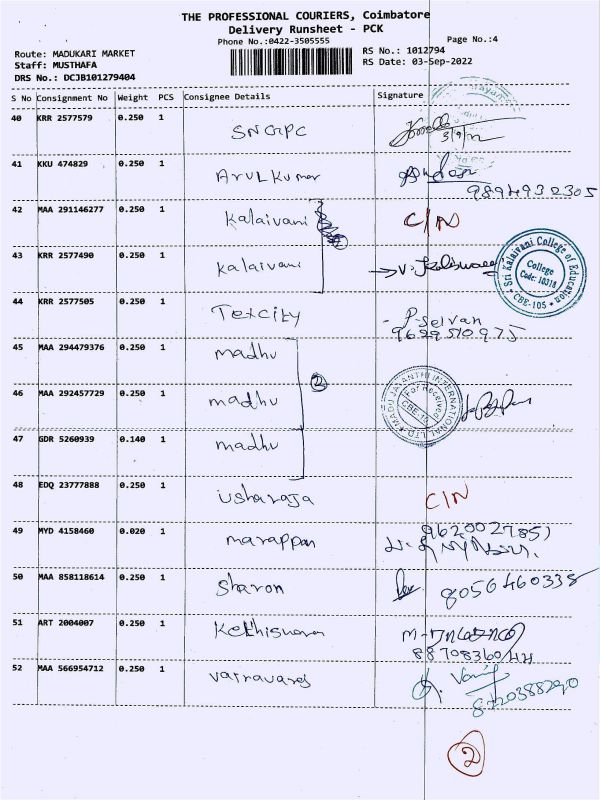 THE PROFESSIONAL COURIERS, Coimbatore
Delivery Runsheet - PCK
Phone No.:0422-3505555
Page No.:4
Route: MADUKARI MARKET
Staff: MUSTHAFA
DRS No.: DCJB101279404
RS No.: 1012794
RS Date: 03-Sep-2022
S No Consignment No Weight PCS Consignee Details Signature
40 KRR 2577579 0.250 1 SNGIPC
3/9/22
41 KKU 474829 0.250 1 Arulkumar
9894932305
42 MAA 291146277 0.250 1 Kalaivani C/N
43 KRR 2577490 0.250 1 Kalaivani
Sri Kalaivani College of Education
College
Code: 10318
CBE-105
44 KRR 2577505 0.250 1 Texcity P. Selvan
9629510975
45 MAA 294479376 0.250 1 madhu
46 MAA 292457729 0.250 1 madhu 2
MADU JAYANTHI INTERNATIONAL LTD
For Received
47 GDR 5260939 0.140 1 madhu
48 EDQ 23777888 0.250 1 usharaja C/N
49 MYD 4158460 0.020 1 marappan
50 MAA 858118614 0.250 1 Sharon 8056460338
51 ART 2004007 0.250 1
52 MAA 566954712 0.250 1
8220388290
2